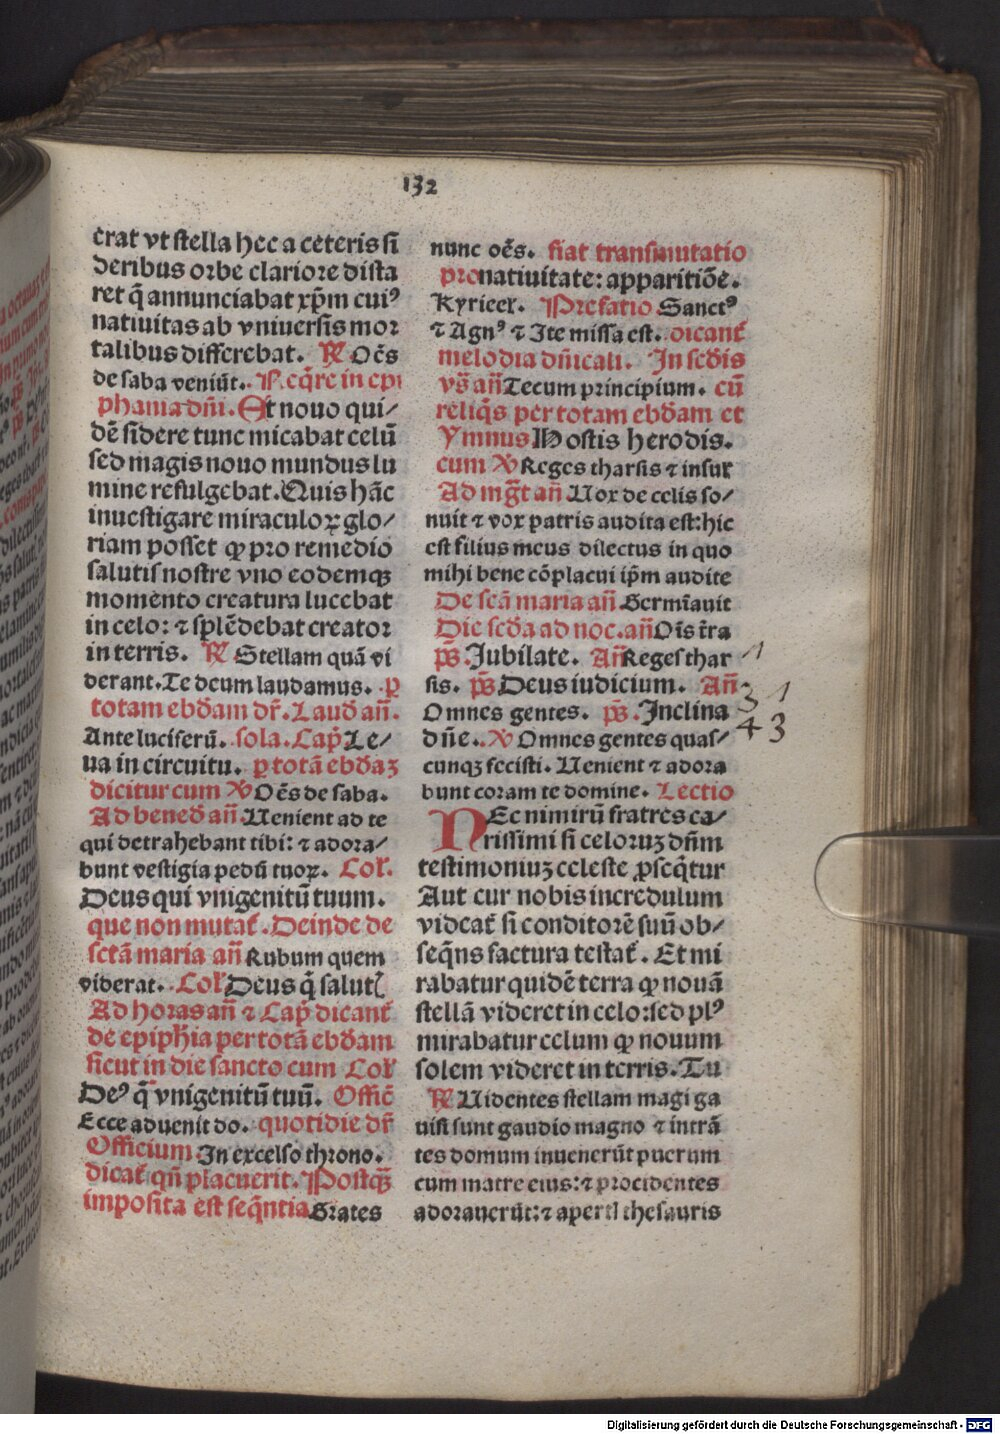 132
erat vt stella hec a ceteris si
deribus orbe clariore dista
ret q̄ annunciabat xp̄m cuiꝰ
natiuitas ab vniuersis mor
talibus differebat. ℟ Oēs
de saba veniūt. V. eq̄re in epi
phania dn̄i. At nouo qui/
dē sidere tunc micabat celū
sed magis nouo mundus lu
mine refulgebat. Quis hāc
inuestigare miraculoꝝ glo/
riam posset qꝫ pro remedio
salutis nostre vno eodemqꝫ
momento creatura lucebat
in celo: ⁊ splēdebat creator
in terris. ℟ Stellam quā vi
derant. Te deum laudamus. ꝑ
totam ebd̄am dr̄. Laud̄ an̄.
Ante luciferū. sola. Cap̄ Le/
ua in circuitu. ꝑ totā ebd̄aꝫ
dicitur cum ℣ Oēs de saba.
Ad bened̄ an̄ Uenient ad te
qui detrahebant tibi: ⁊ adora/
bunt vestigia pedū tuoꝝ. Coll̄.
Deus qui vnigenitū tuum.
que non mutat̄. Deinde de
sctā maria an̄ Rubum quem
viderat. Coll̄ Deus q̄ salut̄
Ad horas an̄ ⁊ Cap̄ dicant̄
de epiph̄ia per totā ebd̄am
sicut in die sancto cum Coll̄
Deꝰ q̄ vnigenitū tuū. Officē
Ecce aduenit do. quotidie dr̄
Officium In excelso throno.
dicat̄ qn̄ placuerit. Postqꝫ̄
imposita est seq̄ntia Grates
nunc oēs. fiat transmutatio
pro natiuitate: apparitiōe.
Kyrieel. Prefatio Sanctꝰ
⁊ Agnꝰ ⁊ Ite missa est. dicant̄
melodia dn̄icali. In scd̄is
vs̄ an̄ Tecum principium. cū
reliq̄s per totam ebd̄am et
Ymnus Hostis herodis.
cum ℣ Reges tharsis ⁊ insul̄
Ad mḡt an̄ Uox de celis so/
nuit ⁊ vox patris audita est: hic
est filius meus dilectus in quo
mihi bene cōplacui ip̄m audite
De scā maria an̄ Germīauit
Die scd̄a ad noc. an̄ Oīs t̄ra
ps̄. Jubilate. An̄ Reges thar 1
sis. ps̄ Deus iudicium. An̄. 3 1
Omnes gentes. ps̄. Inclina
dn̄e. ℣ Omnes gentes quas/ 4 3
cunqꝫ fecisti. Uenient ⁊ adora
bunt coram te domine. Lectio
NEc nimirū fratres ca/
rissimi si celoruꝫ dn̄m
testimoniuꝫ celeste ꝓseq̄tur
Aut cur nobis incredulum
videat̄ si conditorē suū ob/
seq̄ns factura testat̄. Et mi
rabatur quidē terra qꝫ nouā
stellā videret in celo: sed plꝰ
mirabatur celum qꝫ nouum
solem videret in terris. Tu
℟ Uidentes stellam magi ga
uisi sunt gaudio magno ⁊ intrā
tes domum inuenerūt puerum
cum matre eius: ⁊ procidentes
adorauerūt: ⁊ apertꝭ thesauris
Digitalisierung gefördert durch die Deutsche Forschungsgemeinschaft - DFG